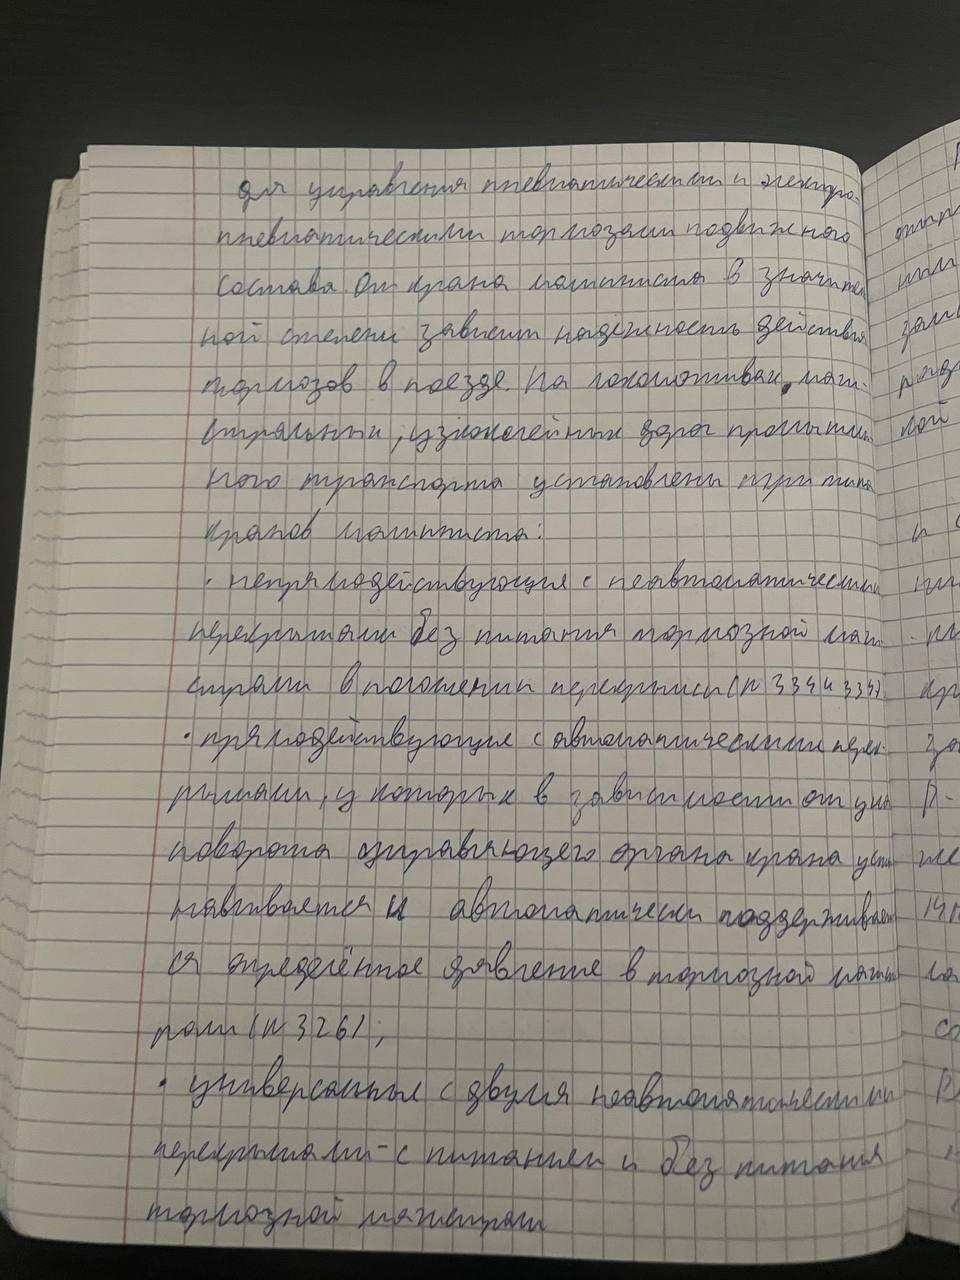 для управления пневматическими и электро-
пневматическими тормозами подвижного
состава. От крана машиниста в значител
ной степени зависит надёжность действия
тормозов в поезде. На локомотивах, маги-
стральных, узколейных дорог промышлен
ного транспорта установлены три типа
кранов машиниста:
· непрямодействующие с неавтоматическими
перекрышами без питания тормозной маги
страли в положении перекрыши (№ 334 и 334)
· прямодействующие с автоматическими перек-
рышами, у которых в зависимости от угла
поворота управляющего органа крана уста
навливается и автоматически поддерживает
ся определённое давление в тормозной магист
рали (№ 326);
· универсальные с двумя неавтоматическими
перекрышами - с питанием и без питания
тормозной магистрали